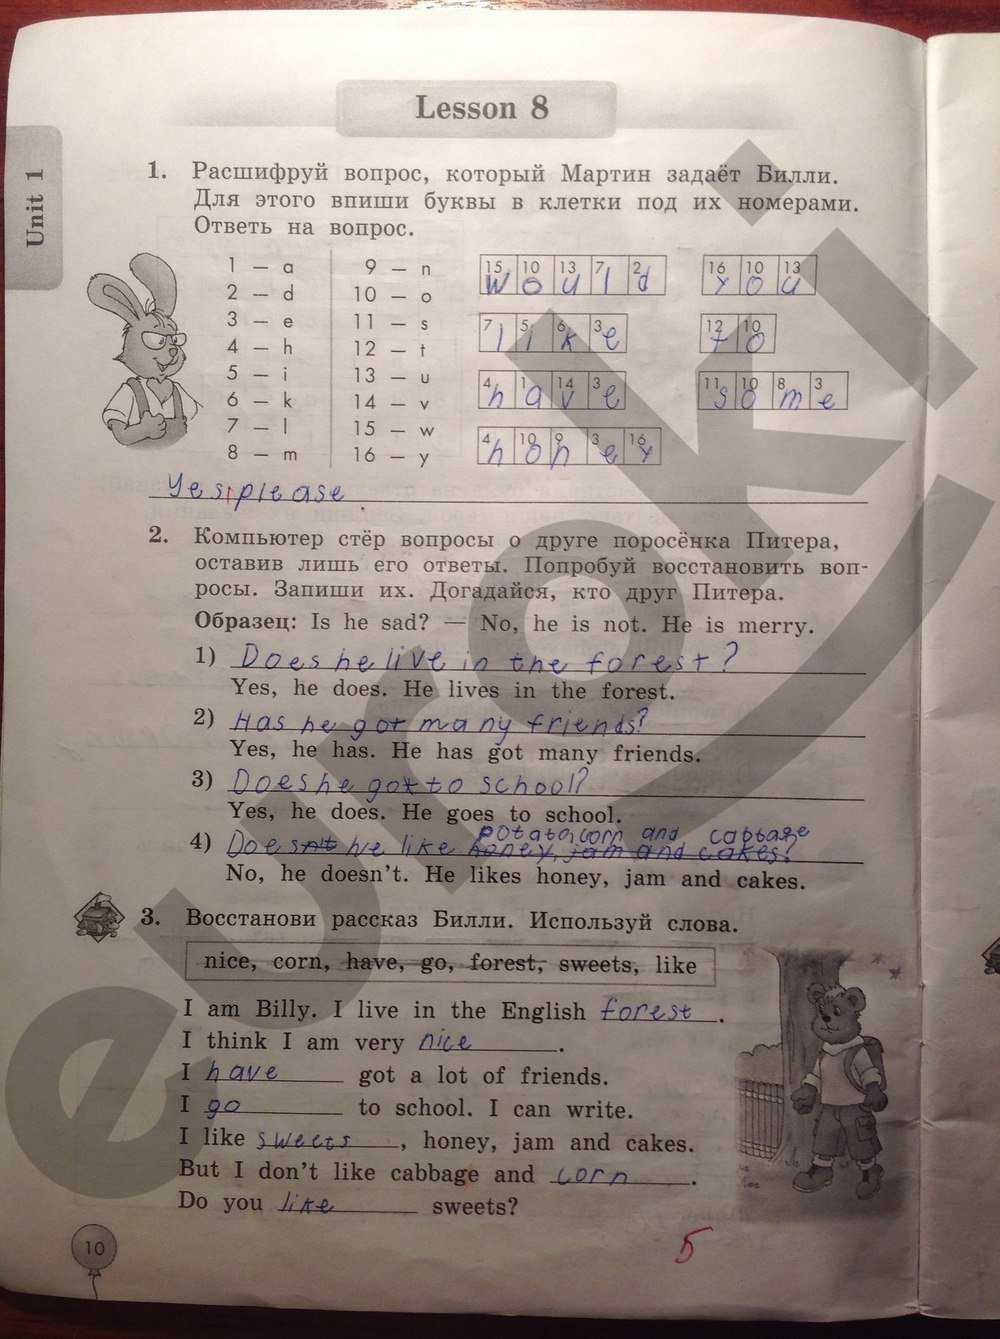 Lesson 8
Unit 1
1. Расшифруй вопрос, который Мартин задаёт Билли.
Для этого впиши буквы в клетки под их номерами.
Ответь на вопрос.
1 — a 9 — n
2 — d 10 — o
3 — e 11 — s
4 — h 12 — t
5 — i 13 — u
6 — k 14 — v
7 — l 15 — w
8 — m 16 — y
15 10 13 7 2 16 10 13
would you
7 5 6 3 12 10
like to
4 1 14 3 11 10 8 3
have some
4 10 9 3 16
honey
Yes, please
2. Компьютер стёр вопросы о друге поросёнка Питера,
оставив лишь его ответы. Попробуй восстановить воп-
росы. Запиши их. Догадайся, кто друг Питера.
Образец: Is he sad? — No, he is not. He is merry.
1) Does he live in the forest?
Yes, he does. He lives in the forest.
2) Has he got many friends?
Yes, he has. He has got many friends.
3) Does he got to school?
Yes, he does. He goes to school.
potato, corn and cabbage
4) Doesn't he like honey, jam and cakes?
No, he doesn't. He likes honey, jam and cakes.
3. Восстанови рассказ Билли. Используй слова.
nice, corn, have, go, forest, sweets, like
I am Billy. I live in the English forest.
I think I am very nice.
I have got a lot of friends.
I go to school. I can write.
I like sweets, honey, jam and cakes.
But I don't like cabbage and corn.
Do you like sweets?
5
10
euroki